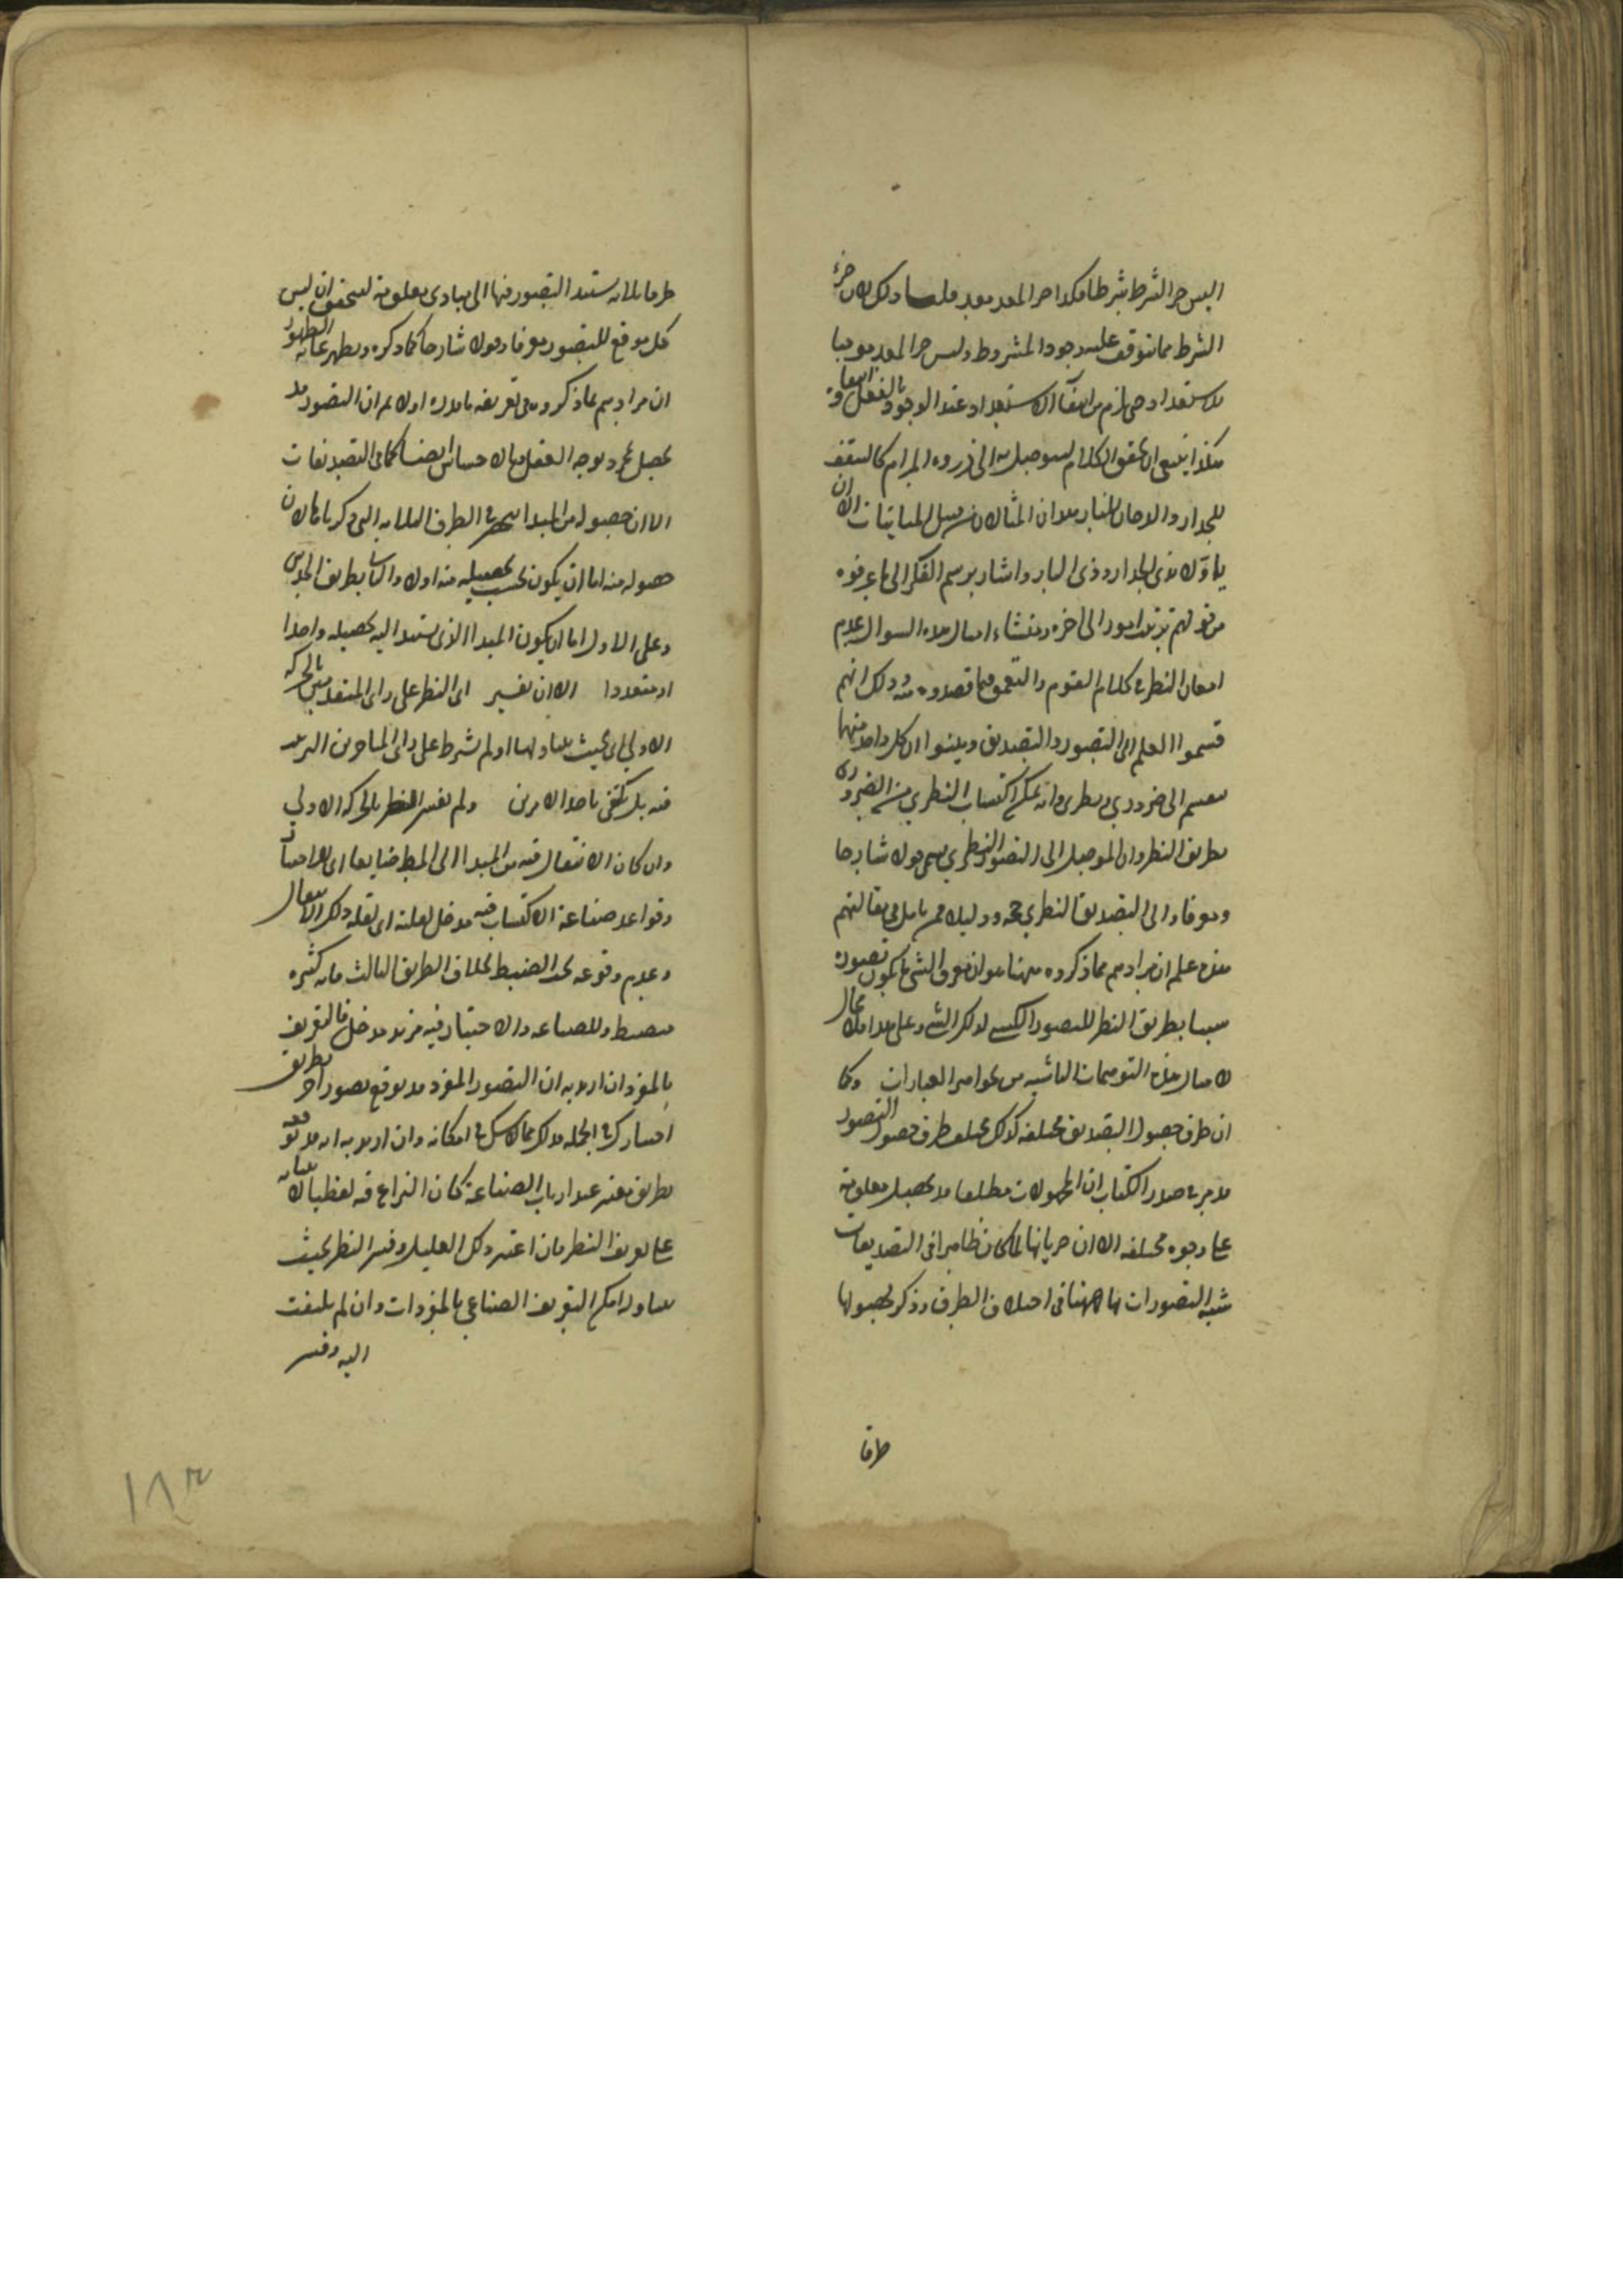 اليس جزء الشرط بشرط فكذا جزء المعد معد قلنا وذلك لان جزء
الشرط مما يتوقف عليه وجود المشروط وليس جزء المعد موجبا
للاستعداد حتى يلزم من انتفاء الاستعداد عند الوجود بالفعل
هكذا ينبغي ان يحقق الكلام ليتوصل به الى ذروة المرام كالسقف
للجدار والدخان للنار هذان المثالان من قبيل المباينات الا ان
ياول بذي الجدار وذي النار واشار برسم الفكر الى ما عرفوه
من قولهم ترتيب امور الى اخره ومنشاء امثال هذه السوال عدم
امعان النظر في كلام القوم والتعمق فيما قصدوه منه وذلك انهم
قسموا العلم الى التصور والتصديق وبينوا ان كل واحد منهما
ينقسم الى ضروري ونظري وانه يمكن اكتساب النظري من الضروري
بطريق النظر وان الموصل الى التصور النظري يسمى قولا شارحا
ومعرفا والى التصديق النظري حجة ودليلا فمن تامل في مقالتهم
هذه علم ان مرادهم مما ذكروه ههنا هو ان معرف الشيء ما يكون تصوره
سببا بطريق النظر للتصور الكسبي لذلك الشيء وعلى هذا فلا مجال
لامثال هذه التوهمات الناشية من ظواهر العبارات وكما
ان طرق حصول التصديق مختلفة كذلك يختلف طرق حصول التصور
قد مر في صدر الكتاب ان المجهولات مطلقا قد يحصل معلومة
على وجوه مختلفة الا ان جريانها لما كان ظاهرا في التصديقات
شبه التصورات بها ههنا في اختلاف الطرق وذكر لحصولها
طرقا
طرقا ثلاثة يستند التصور فيها الى مبادي معلومة ليتحقق ان ليس
كل موقع للتصور معرفا وقولا شارحا كما ذكره ويظهر غاية الظهور
ان مرادهم بما ذكروه في تعريفه ما ذكرنا اولا ثم ان التصور قد
يحصل بمجرد توجه العقل وبالاحساس ايضا كما في التصديقات
الا ان حصوله من المبدا انحصر في الطرق الثلاثة التي ذكرناها لان
حصوله منه اما ان يكون بحسب تحصيله منه اولا والثاني طريق الحدس
وعلى الاول اما ان يكون المبدا الذي يستند اليه تحصيله واحدا
او متعددا الا ان يفسر اي النظر على راي المتقدمين بالحركة
الاولى اي بحيث يتناولها او لم يشترط على راي المتاخرين الترتيب
فيه بل يكتفى باحد الامرين ولم يفسر النظر بالحركة الاولى
وان كان الانتقال فيه من المبدا الى المطلوب صناعيا اي للاختيار
وقواعد صناعة الاكتساب فيه مدخل لقلته اي لقلة ذلك الانتقال
وعدم وقوعه تحت الضبط بخلاف الطريق الثالث فانه كثير
منضبط وللصناعة والاختيار فيه مزيد مدخل فالتعريف
بالمفرد ان اريد به ان التصور المفرد قد يوقع تصور اخر بطريق
اختياري في الجملة فذلك مما لا شك في امكانه وان اريد به انه قد يوقعه
بطريق معتبر عند ارباب الصناعة كان النزاع فيه لفظيا لانبنائه
على تعريف النظر فان اعتبر ذلك القليل وفسر النظر بحيث
يتناوله امكن التعريف الصناعي بالمفردات وان لم يلتفت
اليه وفسر
١٨٣